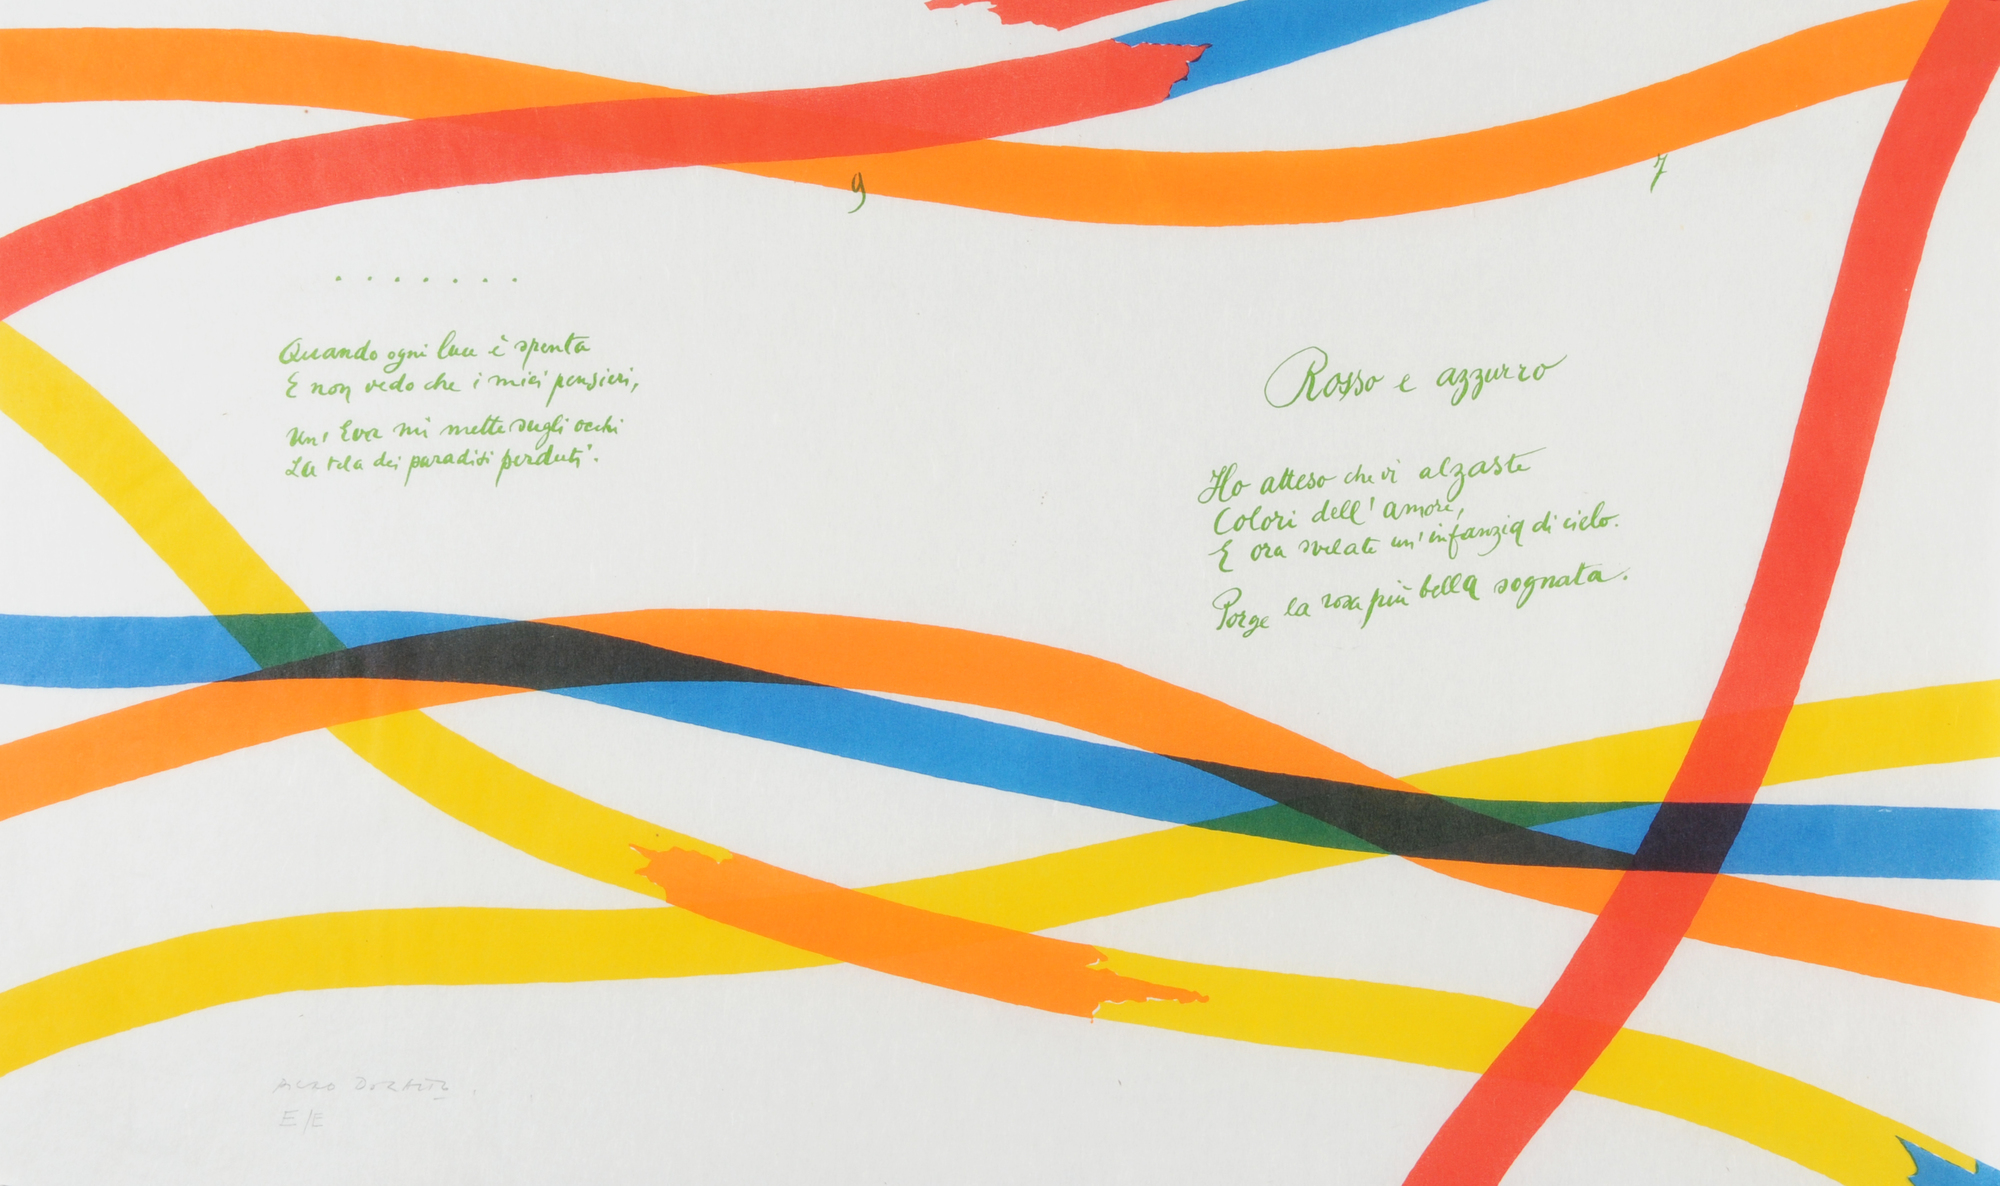 9
7
.......
Quando ogni luce è spenta
E non vedo che i miei pensieri,
Un' Eva mi mette sugli occhi
La tela dei paradisi perduti.
Rosso e azzurro
Ho atteso che vi alzaste
Colori dell'amore,
E ora svelate un'infanzia di cielo.
Porge la rosa più bella sognata.
Piero Dorazio
E/E